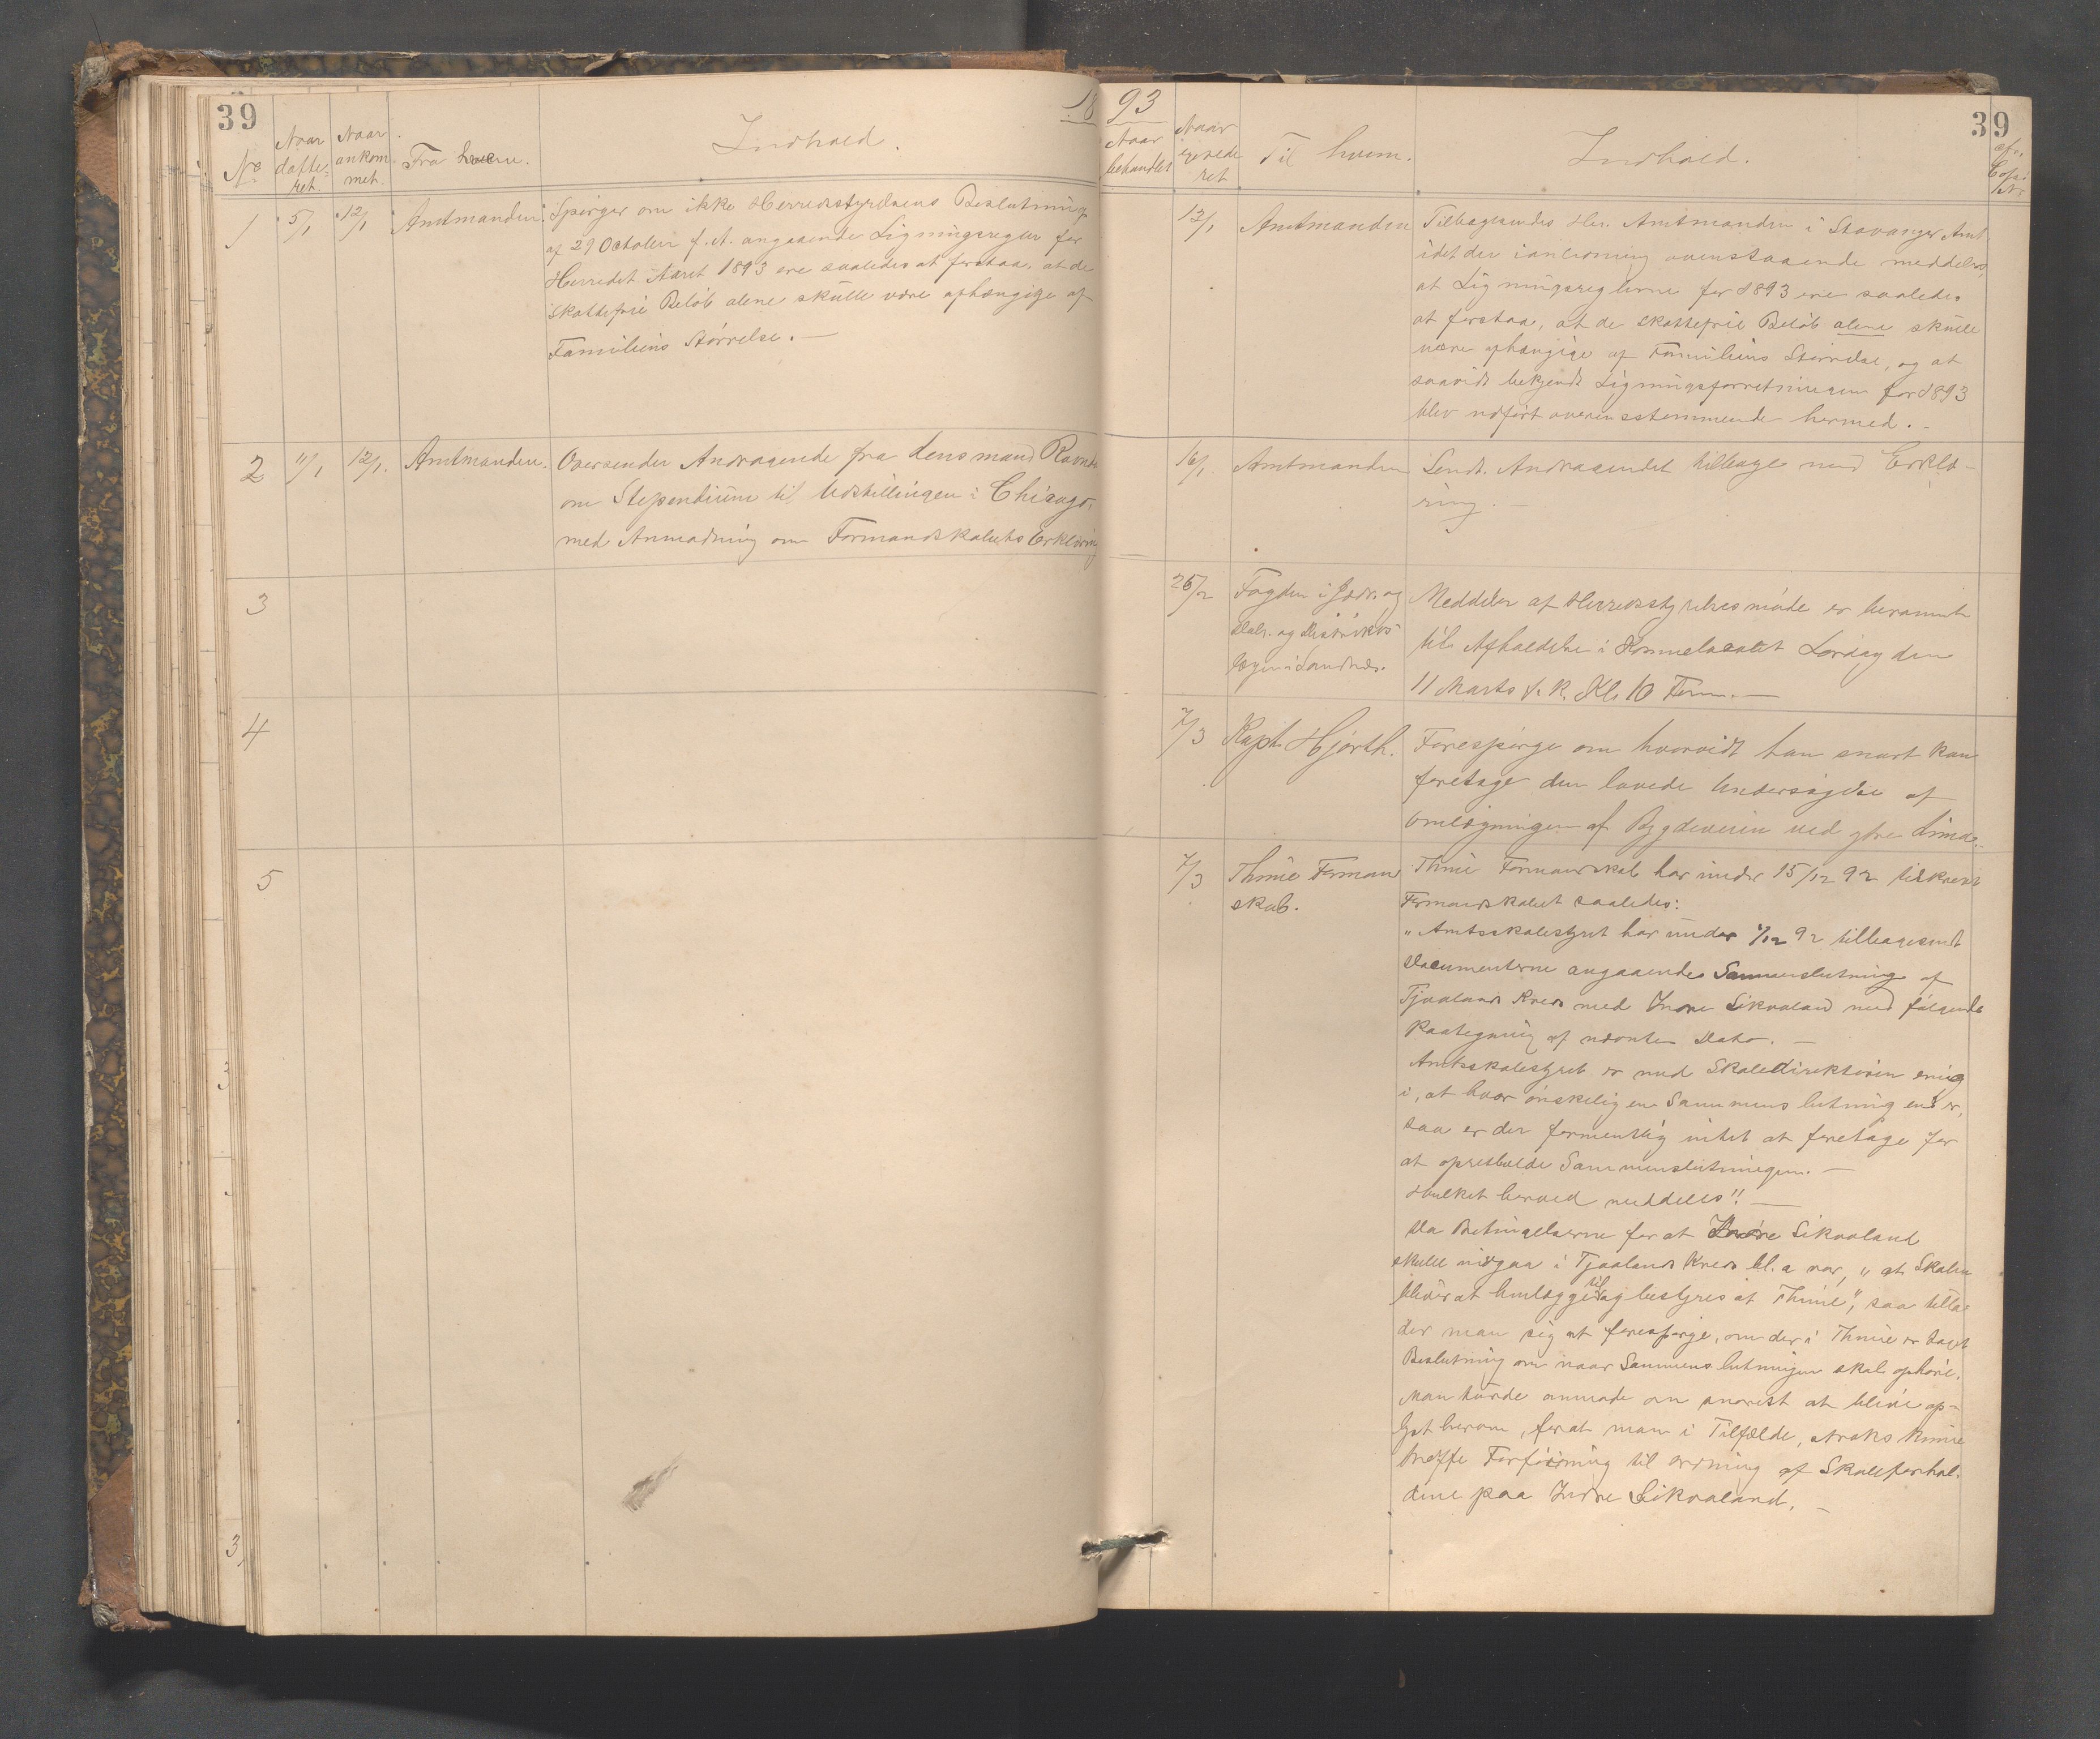 39
1893
39
No
Naar datte-ret.
Naar ankom met.
Fra hvem.
Indhold.
Naar behandlet
Til hvem.
Indhold.
1
5/1
12/1
Amtmanden.
Spörger om ikke Herredsstyrelsens Beslutning
af 29 October f. A. angaaende Ligningsregler for
Herredet Aaret 1893 ere saaledes at forstaa, at de
skattefrie Belöb alene skulle være afhængige af
Familiens Störrelse. —
13/1
Amtmanden
Tilbagesendes Hr. Amtmanden i Stavanger Amt
idet der i anledning ovenstaaende meddeles,
at Ligningsreglerne for 1893 ere saaledes
at forstaa, at de skattefrie Belöb alene skulle
være afhængige af Familiens Störrelse, og at
saavidt bekjendt Ligningsforretningen for 1893
blev udfört overensstemmende hermed. -
2
11/1
12/1.
Amtmanden.
Oversender Andragende fra Lensmand
om Stependium til Udstillingen i Chicago,
med Anmodning om Formandskabets Erklæring
16/1.
Amtmanden
Sendt Andragendet tilbage med Erklæ-
ring. —
3
25/2
Fogden i Jæd. og
Dal. og Distrikts-
lægen i Sandnæs.
Meddeler at Herredsstyrelsesmöde er berammet
til Afholdelse i Kommelocalet Lördag den
11 Marts f. k. Kl. 10 Form. —
4
7/3
Kapt. Hjorth.
Forespörge om hvorvidt han snart kan
foretage den lovede Undersögelse af
Omlægningen af Bygdeveien ved ytre Lima.
5
7/3
Thime Forman
skab.
Thime Formandskab har under 15/12 92 tilskrevet
Formandskabet saaledes:
"Amtsskolestyret har under 7/12 92 tilbagesendt
Documenterne angaaende Sammenslutning af
Tjaalands Kreds med Indre Sikvaland med fölgende
Paategning af nævnte Dato. —
Amtsskolestyret er med Skoledirektören enig
i, at hvor önskelig en Sammenslutning end er,
saa er der formentlig intet at foretage for
at opretholde Sammenslutningen. —
Hvilket herved meddeles!! —
Da Betingelserne for at Indre Sikvaland
skulle indgaa i Tjaalands Kreds bl. a var, "at Skolen
bliver at henlægge til og bestyres af Thime", saa tilla-
der man sig at forespörge, om der i Thime er taget
Beslutning om naar Sammenslutningen skal ophöre.
Man turde anmode om snarest at blive op-
lyst herom, forat man i Tilfælde, straks kunne
træffe Forföining til ordning af Skoleforhol-
dene paa Indre Sikvaland. —